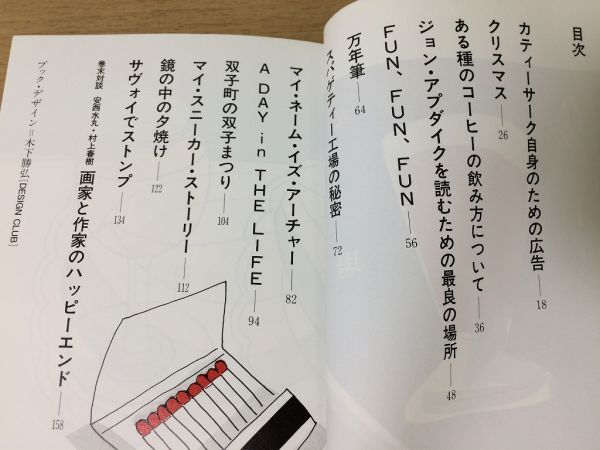 目次
カティーサーク自身のための広告——18
クリスマス——26
ある種のコーヒーの飲み方について——36
ジョン・アプダイクを読むための最良の場所——48
FUN、FUN、FUN——56
万年筆——64
スパゲティー工場の秘密——72
マイ・ネーム・イズ・アーチャー——82
A DAY in THE LIFE——94
双子町の双子まつり——104
マイ・スニーカー・ストーリー——112
鏡の中の夕焼け——122
サヴォイでストンプ——134
巻末対談 安西水丸・村上春樹 画家と作家のハッピーエンド——158
ブック・デザイン=木下勝弘[DESIGN CLUB]